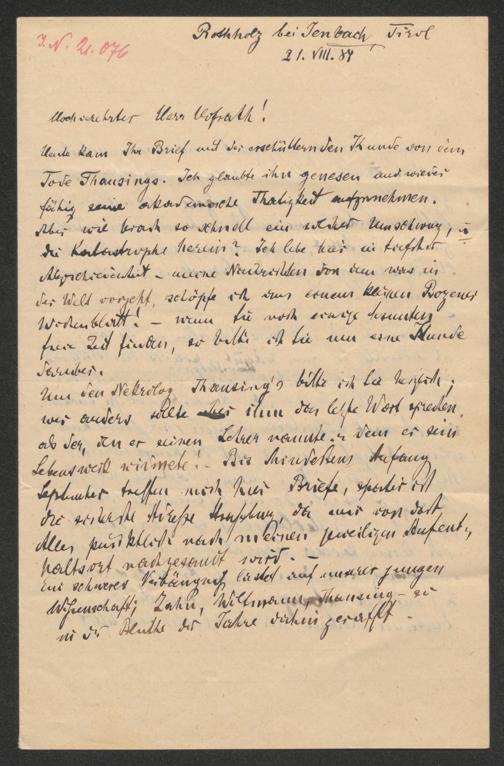 J.N. 21.076
Rothholz bei Jenbach, Tirol
21. VIII. 84
Hochverehrter Herr Hofrath!
Heute kam Ihr Brief mit der erschütternden Kunde von dem
Tode Thausings. Ich glaubte ihn genesen und wieder
fähig seine akademische Thätigkeit aufzunehmen.
Aber wie brach so schnell ein solcher Umschwung, u
die Katastrophe herein? Ich lebe hier in tiefster
Abgeschiedenheit – meine Neuigkeiten von dem was in
der Welt vorgeht, schöpfe ich aus einem kleinen Bozener
Wochenblatt! – wenn Sie noch einige Minuten
freie Zeit finden, so bitte ich Sie um eine Kunde
darüber.
Um den Nekrolog Thausing's bitte ich Sie herzlich;
wer anders sollte ihm das letzte Wort sprechen,
als der, den er seinen Lehrer nannte u dem er sein
Lebenswerk widmete! – Bis mindestens Anfang
September treffen mich hier Briefe, später ist
die sicherste Adresse da mir von dort
Alles pünktlich nach meinem jeweiligen Aufent-
haltsort nachgesandt wird. –
Ein schweres Verhängniß lastet auf unserer jungen
Wissenschaft; Zahn, Woltmann, Thausing –
in der Blüthe der Jahre dahingerafft –